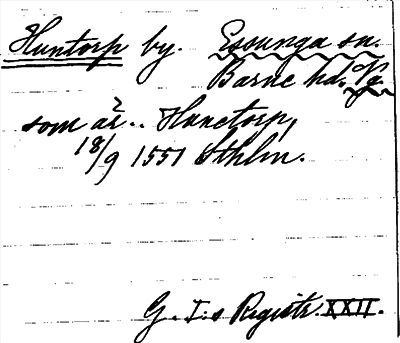 Huntorp by. Essunga sn.
Barne hd. Vg.
som är.. Hunetorp,
18/9 1551 Sthlm.
G. I:s Registr. XXII.